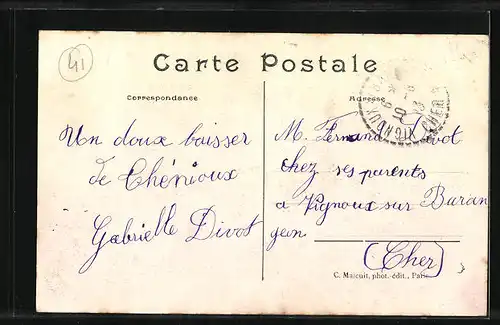 41
Carte Postale
Correspondance
Adresse
VIGNOUX
CHER
Un doux baiser
de Chénioux
Gabrielle Divot
M. Fernand Divot
chez ses parents
a Vignoux sur Baran
geon
(Cher)
C. Maicuit, phot. édit., Paris